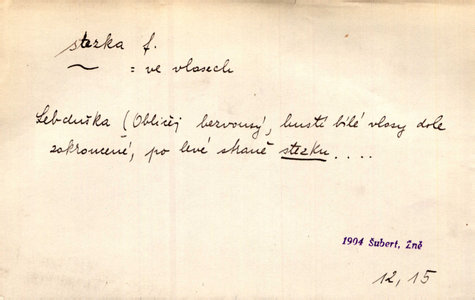 stezka f.
= ve vlasech
(Obličej bezvousý, husté bílé vlasy dole
zakroucené, po levé straně stezku....
1904 Šubert, Žně
12, 15